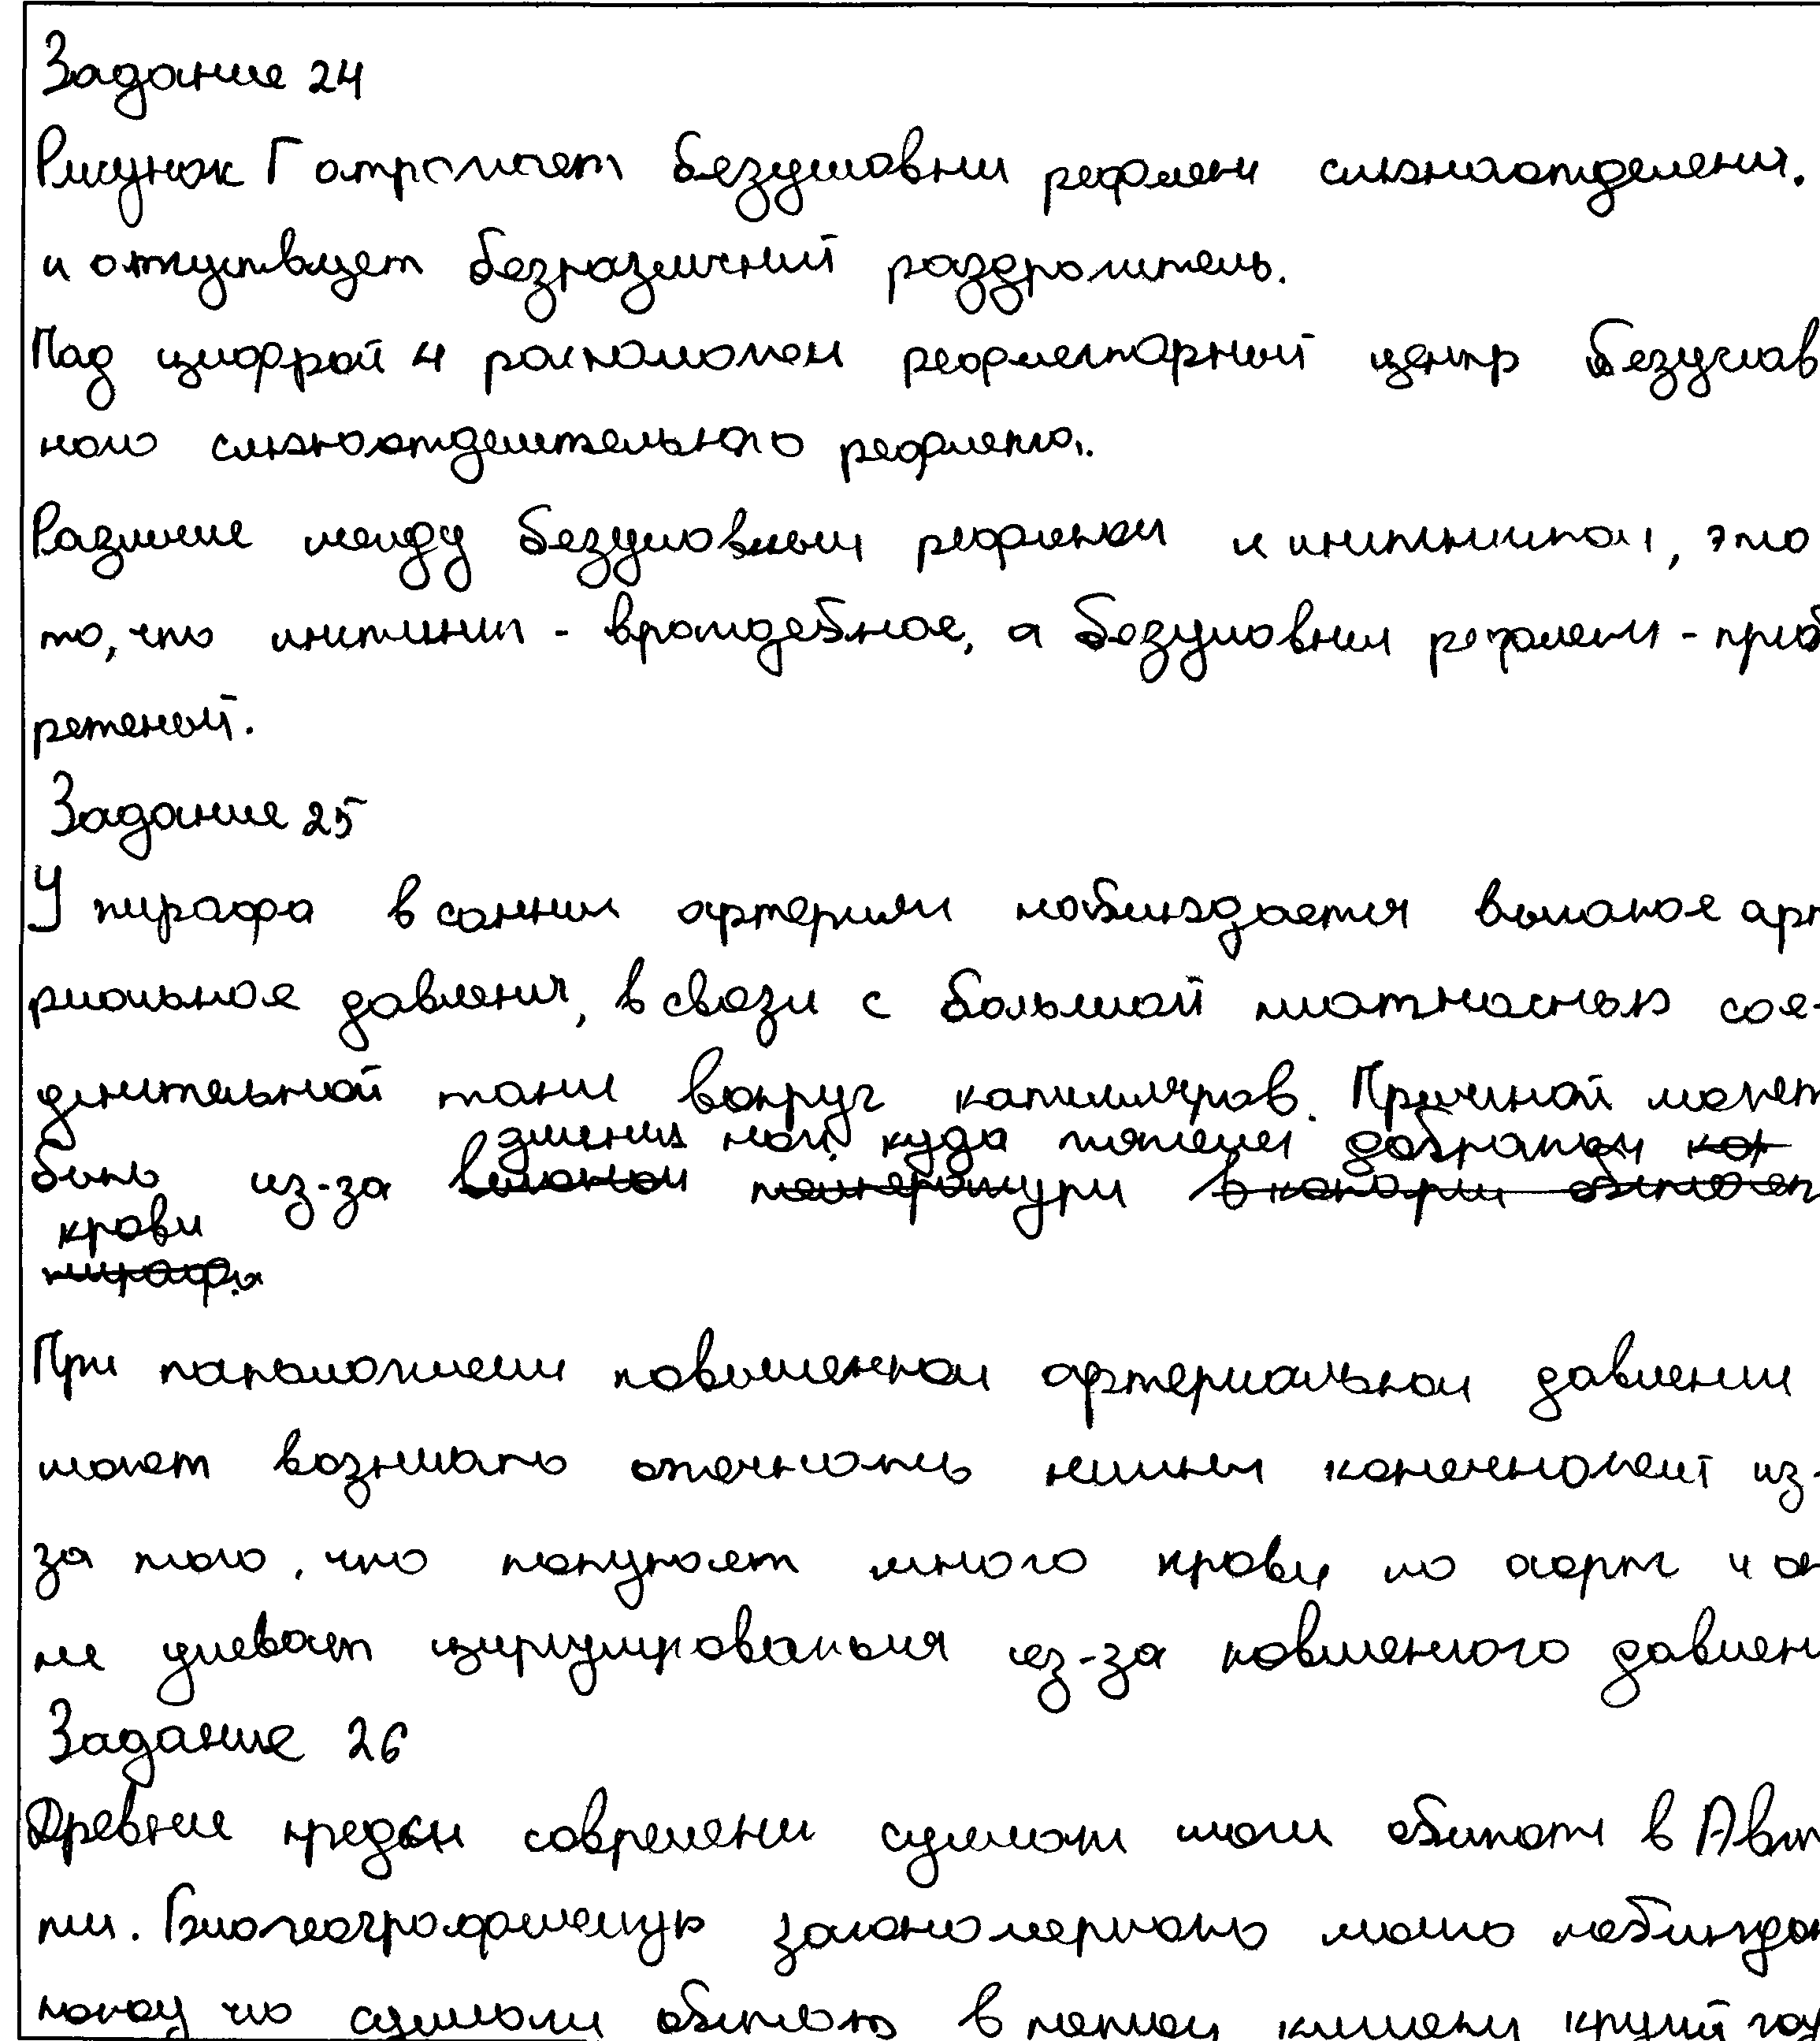 Задание 24
Рисунок Г отрожает безусловни рефлекс слюноотделения.
и отсуствует безразличний раздрожитель.
Под цифрой 4 росположен рефлекторный центр безуслов
ного слюноотделительного рефлекса.
Различие между безусловным рефлексом и инстинктом, это
то, что инстинкт - врождебное, а безусловнии рефлекс - приоб
ретеной.
Задание 25
У жирафа в сонних артериях наблюздается высокое арт
риольное давления, в свози с большой плотностью сое-
денительной ткани вокруг капилляров. Причиной может
длинних ног, куда тяжелее добраться
быть из-за
крови
При потологическом повышенном артериальном давлении
может возникать отечность нижних конечностей из-
за того, что поступает много крови по аорте и он
не успевает циркулироваться из-за повшеного давлен
Задание 26
Древние предки современи сумчатых могли обитать в Авст
Биогеографическую закономерность можно наблюдат
потому что сумчатые обитают в климате круглый год